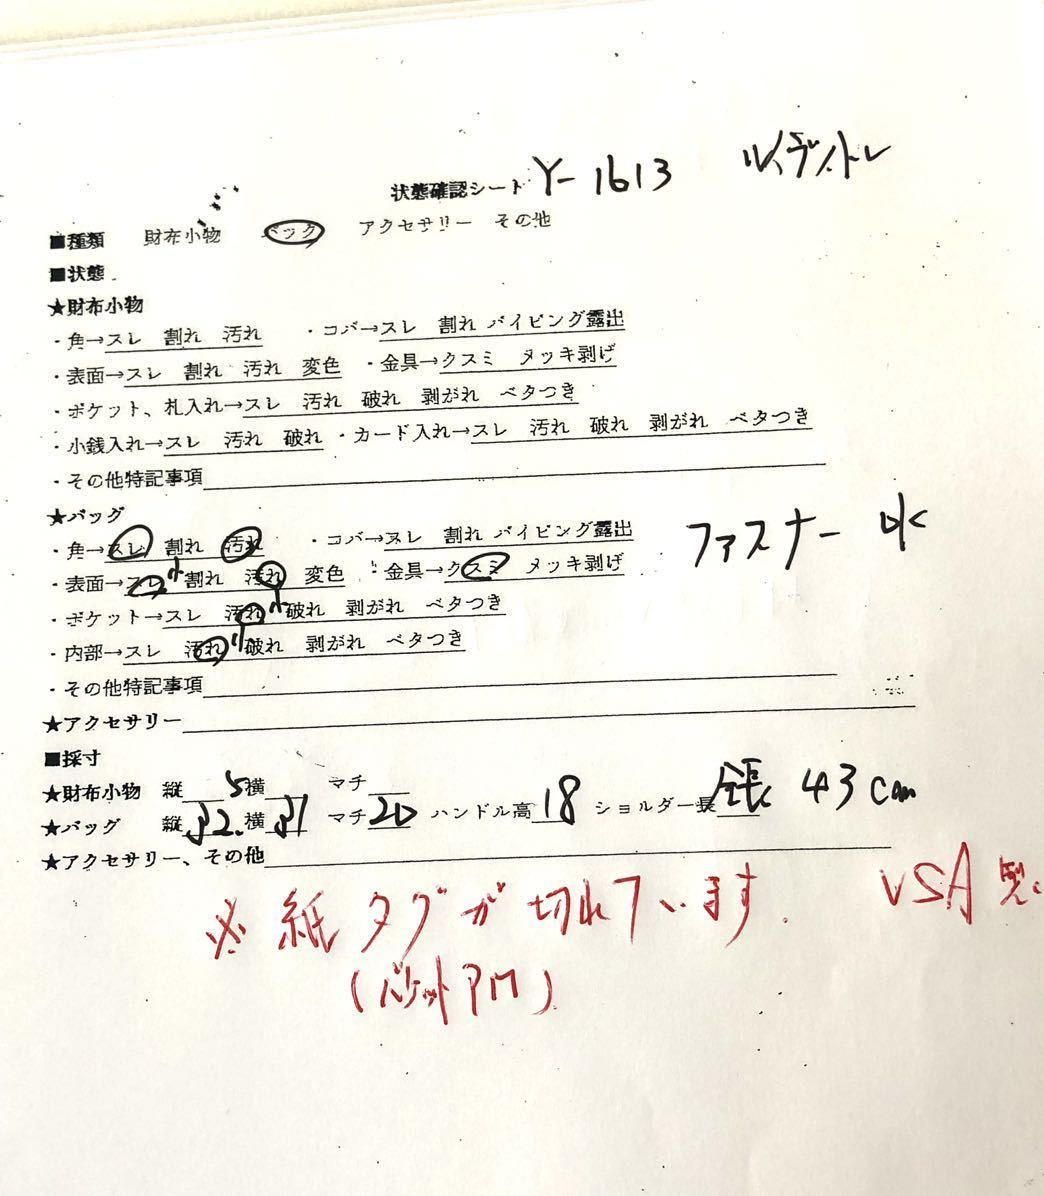 状態確認シート Y-1613
■種類 財布小物 バッグ アクセサリー その他
■状態
★財布小物
・角→スレ 割れ 汚れ ・コバ→スレ 割れ パイピング露出
・表面→スレ 割れ 汚れ 変色 ・金具→クスミ メッキ剥げ
・ポケット、札入れ→スレ 汚れ 破れ 剥がれ ベタつき
・小銭入れ→スレ 汚れ 破れ ・カード入れ→スレ 汚れ 破れ 剥がれ ベタつき
・その他特記事項
★バッグ
・角→スレ 割れ 汚れ ・コバ→スレ 割れ パイピング露出 ファスナー
・表面→スレ 小 割れ 汚れ 変色 ・金具→クスミ メッキ剥げ
・ポケット→スレ 汚れ 小 破れ 剥がれ ベタつき
・内部→スレ 汚れ 小 破れ 剥がれ ベタつき
・その他特記事項
★アクセサリー
■採寸
★財布小物 縦 横 マチ
★バッグ 縦 横 マチ 20 ハンドル高 18 ショルダー長 全長 43cm
★アクセサリー、その他
※紙タグが切れています。 VSA製
(バケットPM)